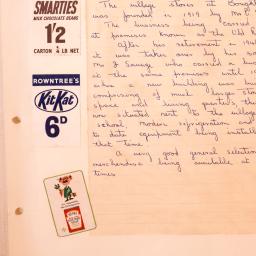 SMARTIES
MILK CHOCOLATE BEANS
1/2
CARTON ¼ LB NET.
ROWNTREE'S
Kit Kat
6D
HEINZ
The village stores at
was founded in 1919 by
The business being carried
at premises known as the
After his retirement in
it was taken over by his
Mr J Savage who carried a
at the same premises until
when a new building
comprising of much larger store
space and living quarters, this
was situated next to the village
school. Modern refrigeration and
to date equipment being installed
that time.
A very good general selection
merchandise being available at
times